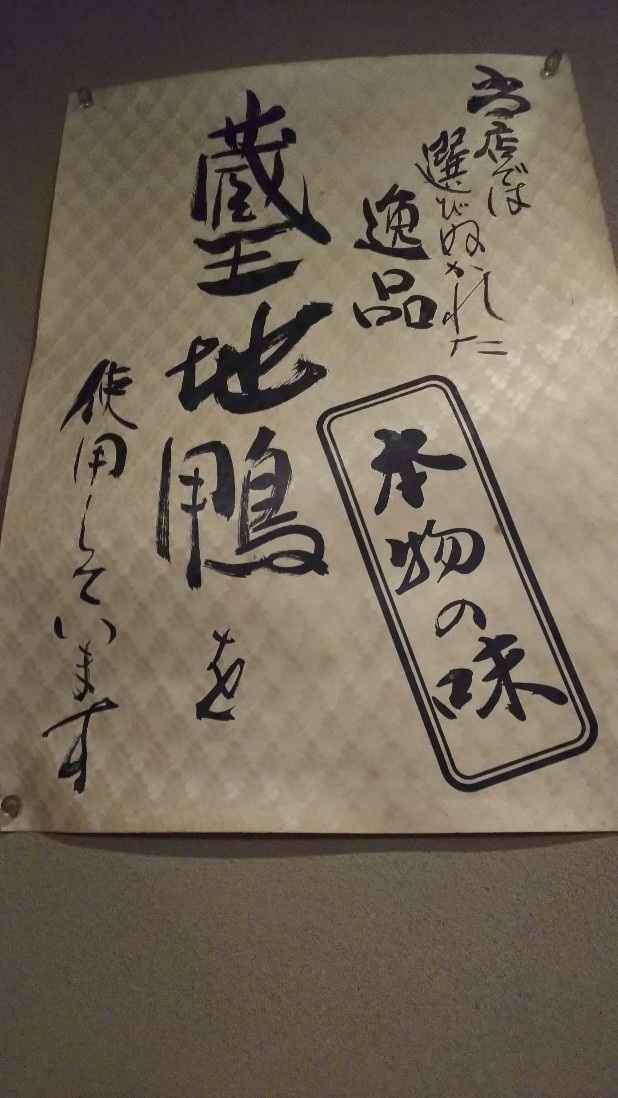 当店では
選びぬかれた
逸品
本物の味
蔵王地鴨を
使用しています